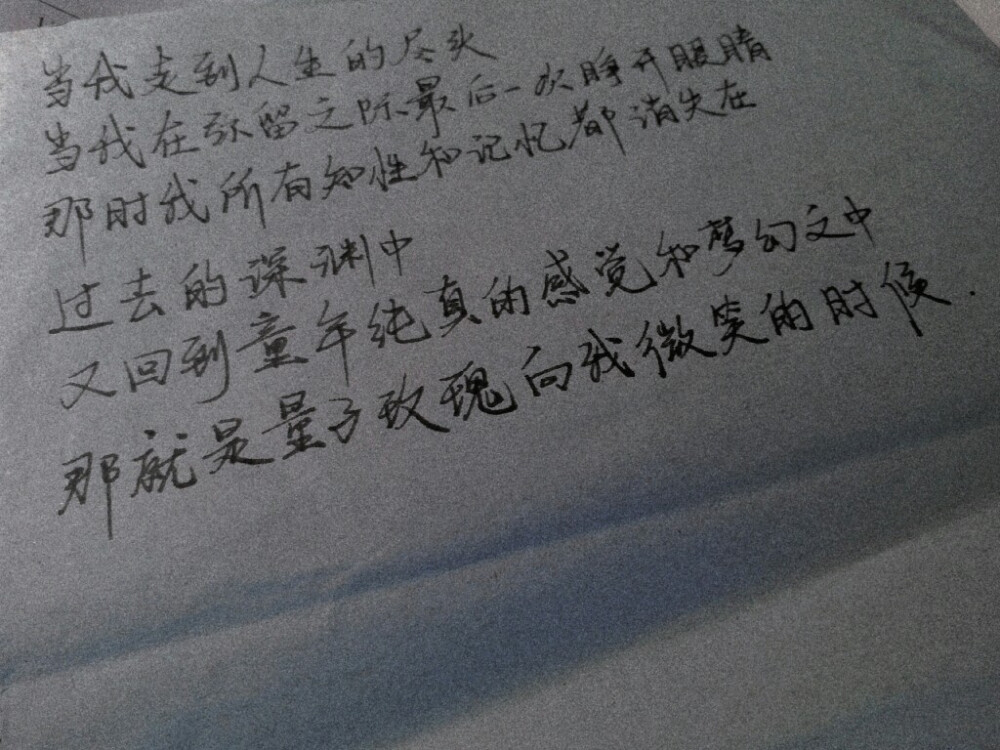 当我走到人生的尽头
当我在弥留之际最后一次睁开眼睛
那时我所有知性和记忆都消失在
过去的深渊中
又回到童年纯真的感觉和梦幻之中
那就是量子玫瑰向我微笑的时候.